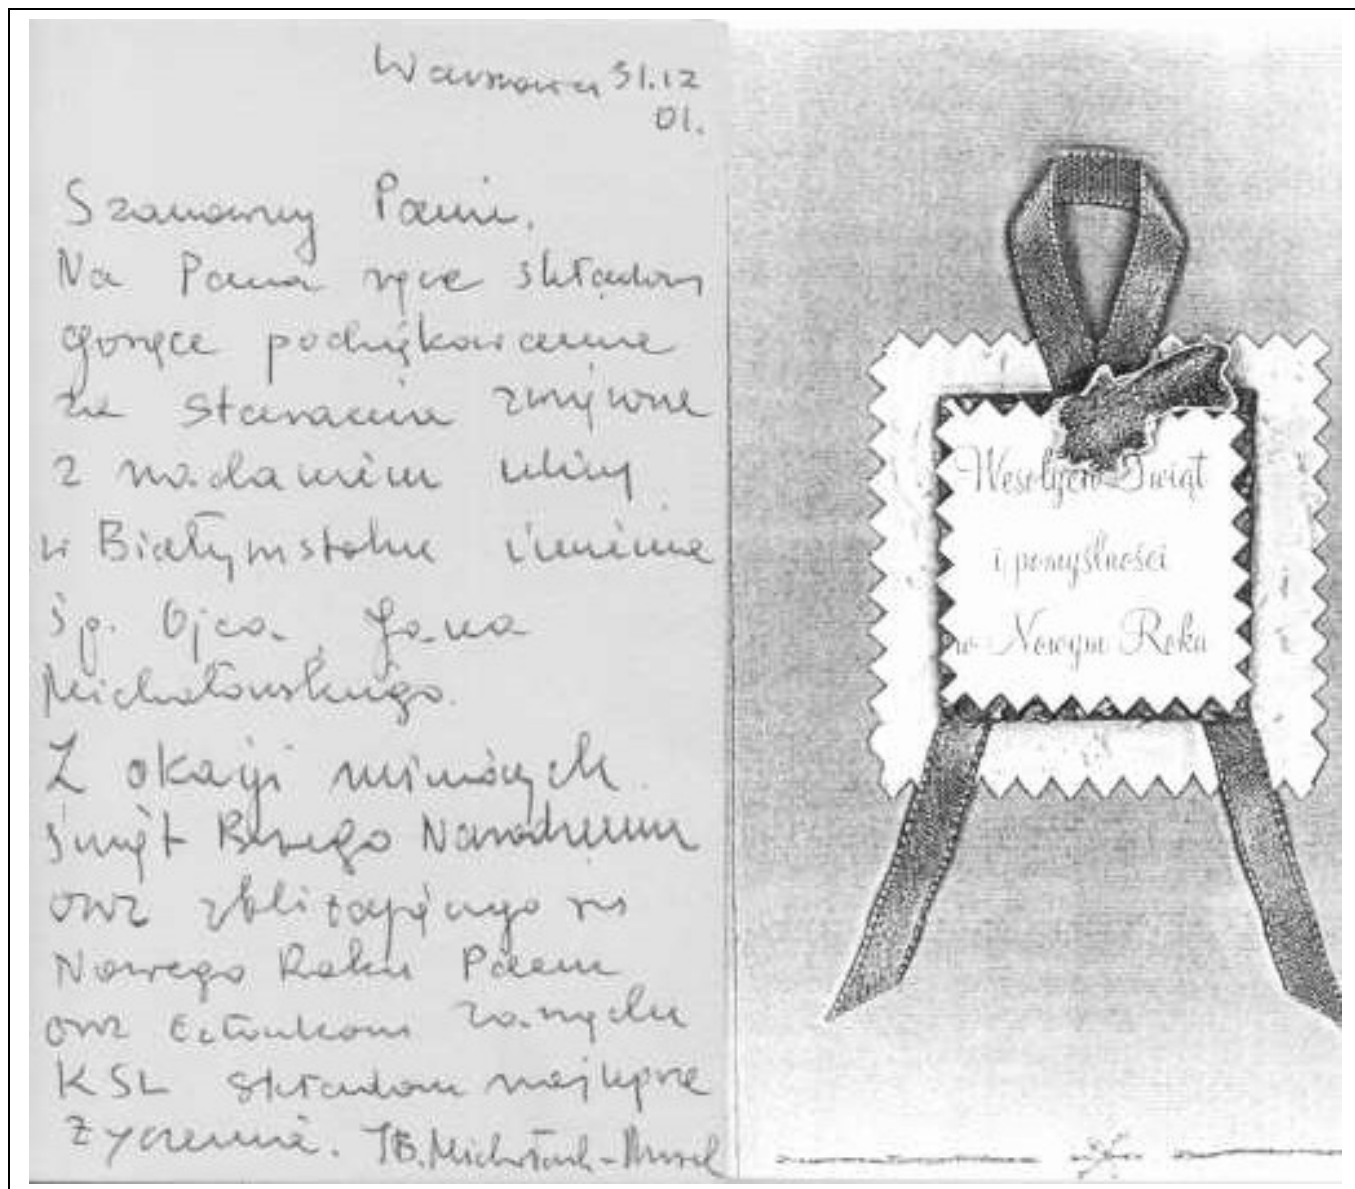 Warszawa 31.12
01.
Szanowny Panie,
Na Pana ręce składam
gorące podziękowanie
za starania związane
z nadaniem ulicy
w Białymstoku imienia
śp. Ojca Jana
Michałowskiego.
Z okazji minionych
Świąt Bożego Narodzenia
oraz zbliżającego się
Nowego Roku Panu
oraz członkom Zarządu
KSL składam najlepsze
życzenia.
Wesołych Świąt
i pomyślności
w Nowym Roku